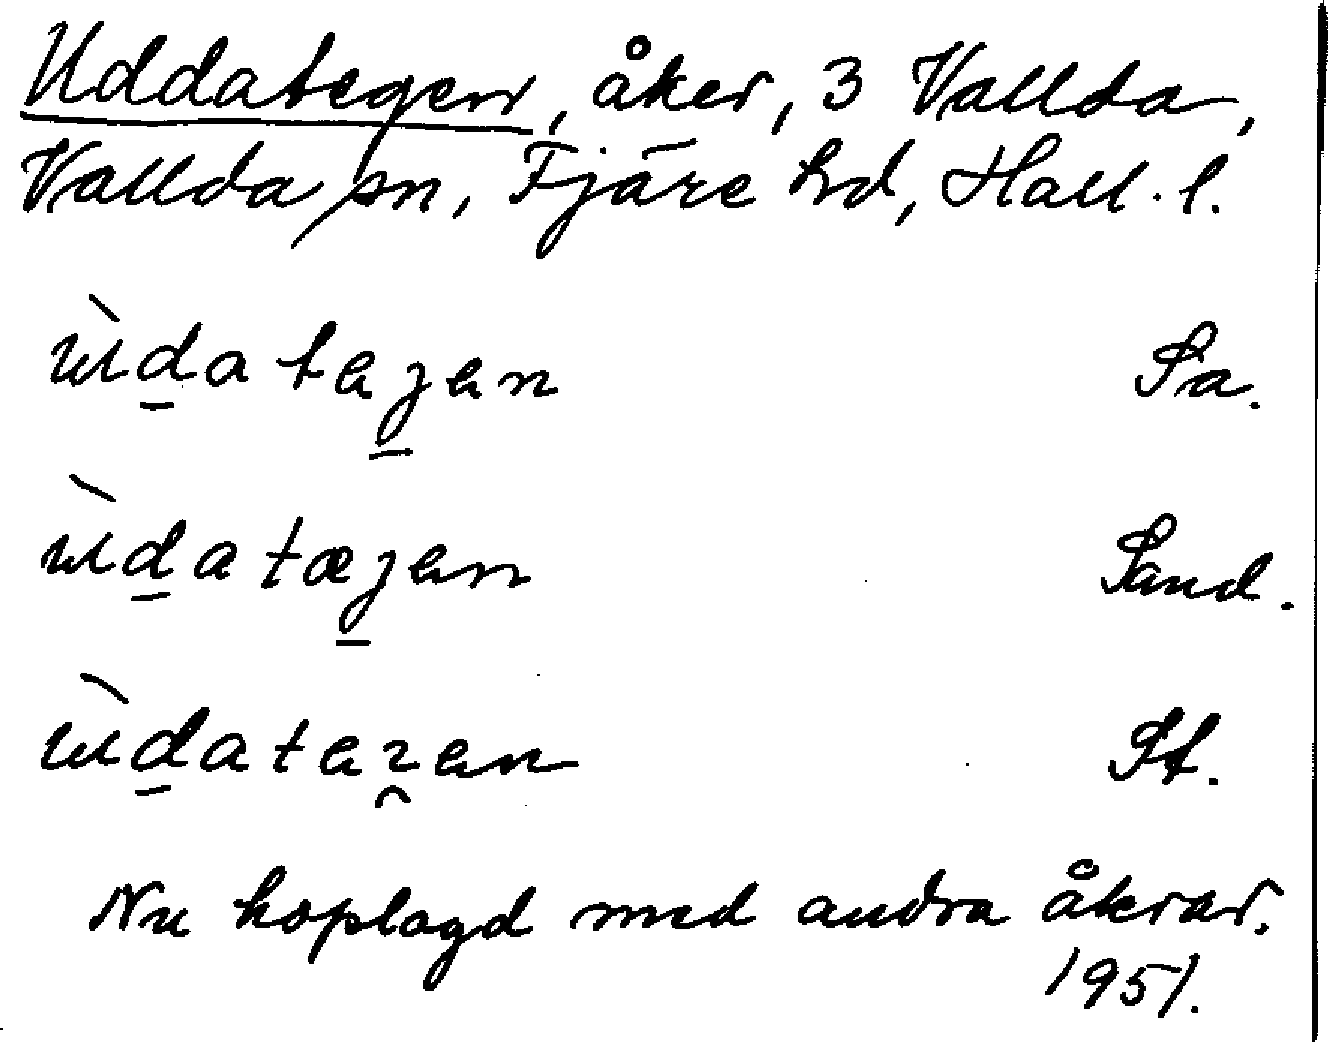 Uddategen, åker, 3 Vallda,
Vallda sn, Fjäre hd, Hall. l.
ùda tegen Sa.
ùdatægen Sand.
ùdatezen St.
Nu hoplagd med andra åkrar.
1951.